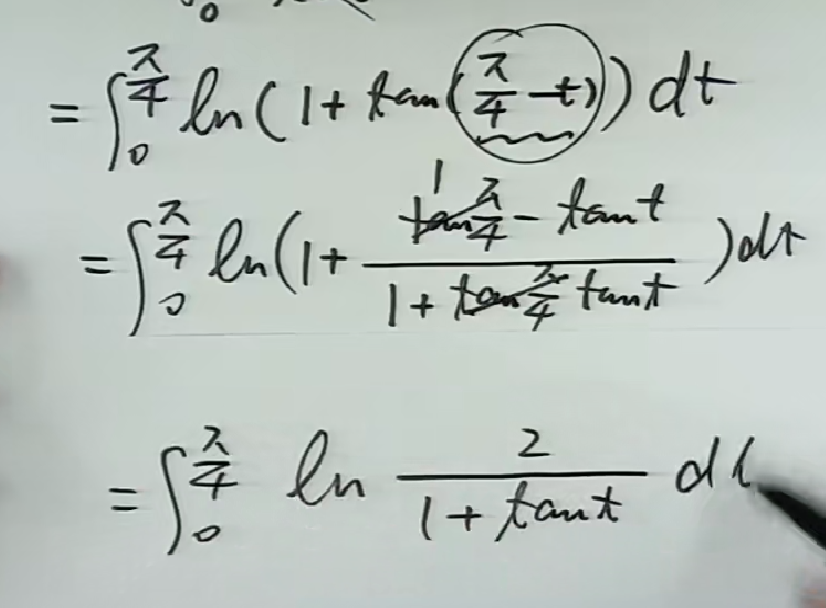 = ∫₀^{π/4} ln(1+tan(π/4−t))dt
= ∫₀^{π/4} ln(1+ (1 tan π/4 − tan t)/(1+tan π/4 tan t))dt
= ∫₀^{π/4} ln 2/(1+tan t) d